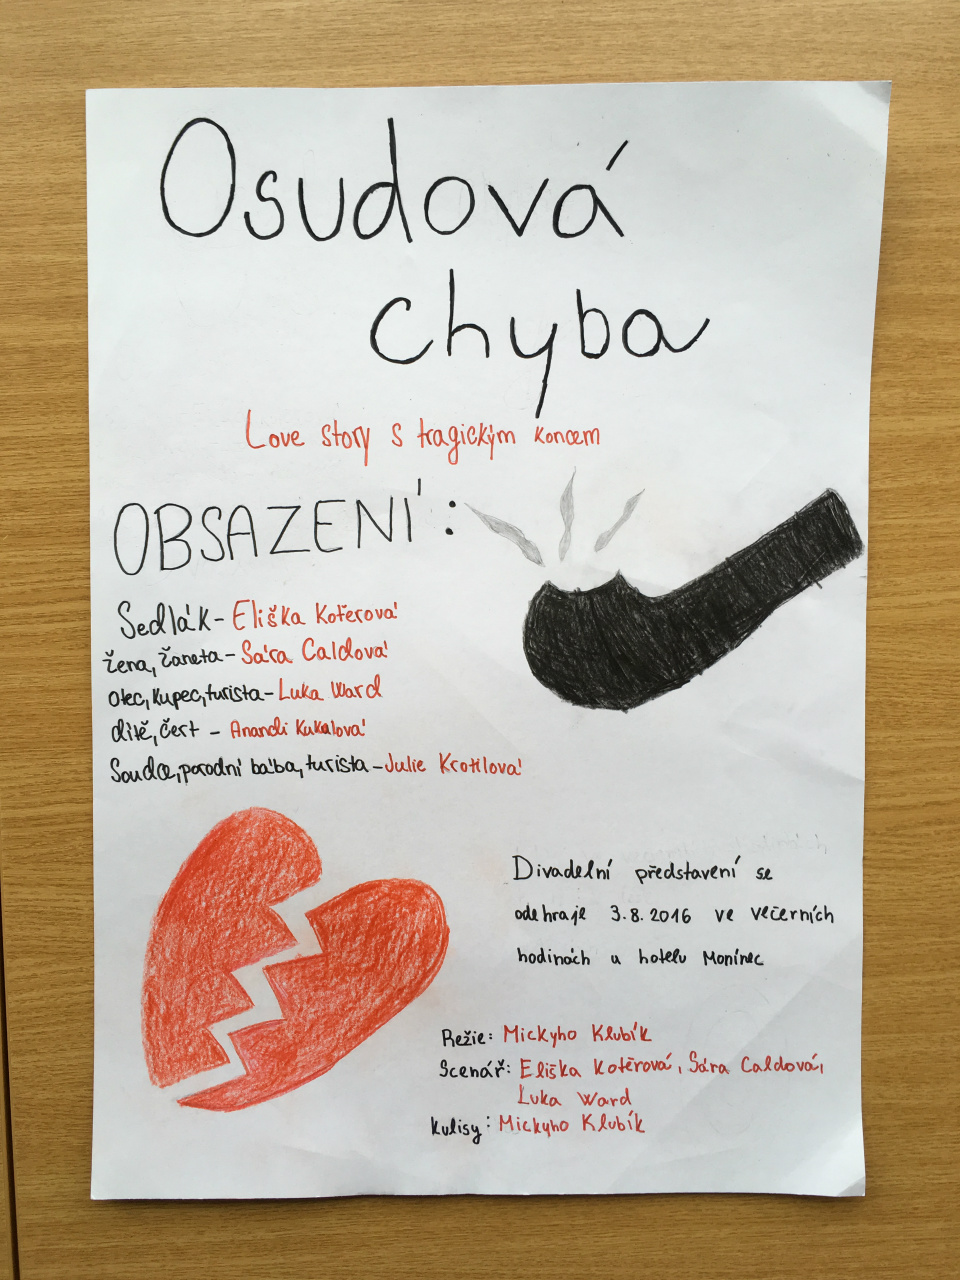 Osudová
chyba
Love story s tragickým koncem
OBSAZENÍ:
Sedlák - Eliška Kotěrová
žena, Žaneta - Sára Caldová
otec, kupec, turista - Luka Ward
dítě, čert - Anandi Kukalová
Soudce, porodní bába, turista - Julie Krotilová
Divadelní představení se
odehraje 3.8.2016 ve večerních
hodinách u hotelu Monínec
Režie: Mickyho Klubík
Scenář: Eliška Kotěrová, Sára Caldová,
Luka Ward
kulisy: Mickyho Klubík